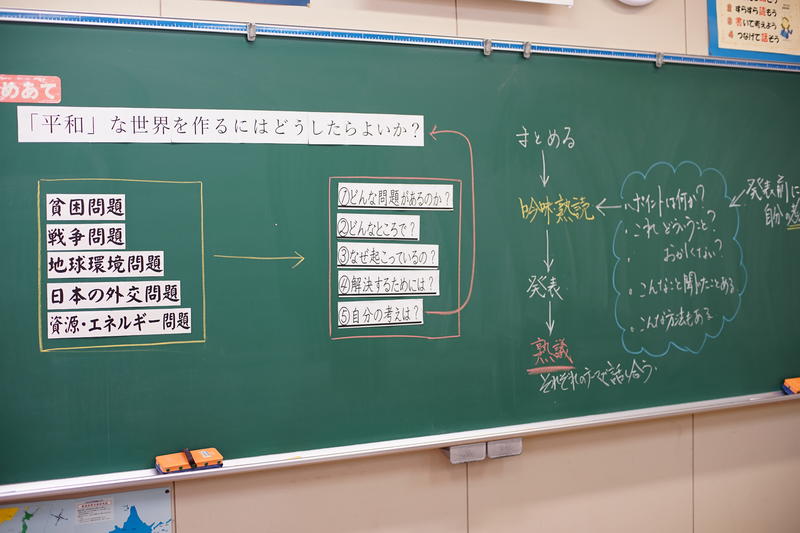 すらすら読もう
書いて考えよう
4 つなげて話そう
めあて
「平和」な世界を作るにはどうしたらよいか？
貧困問題
戦争問題
地球環境問題
日本の外交問題
資源・エネルギー問題
①どんな問題があるのか？
②どんなところで？
③なぜ起こっているの？
④解決するためには？
⑤自分の考えは？
まとめる
吟味熟読
発表
熟議
それぞれのテーマで話し合う.
・ポイントは何か？
・これどういうこと？
・おかしくない？
・こんなこと聞いたことある
・こんな方法もある
発表前に
自分の考